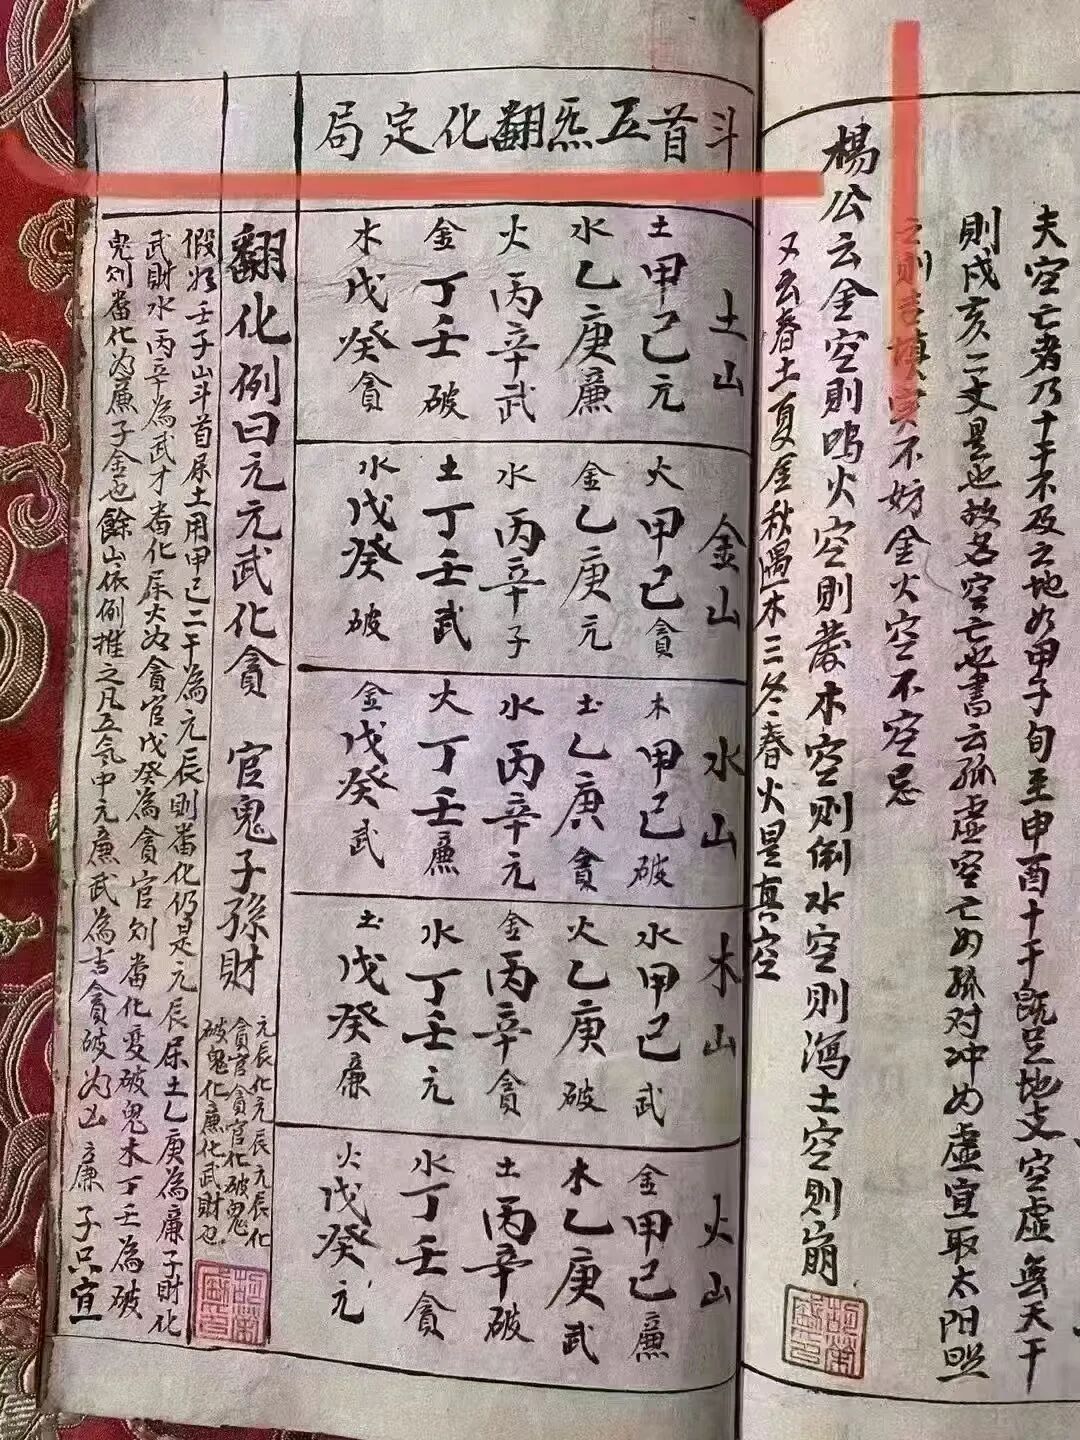 夫空亡者乃十干不及之地如甲子旬至申酉十干既足地支空虛無天干
則戌亥二支是也故名空亡也書云孤虛空亡如孤对冲如虛宜取太阳照
之則吉填实不妨金火空不空忌
楊公云金空則鳴火空則發木空則倒水空則瀉土空則崩
又云春土夏金秋遇木三冬春火是真空
斗首五炁翻化定局
土山
土甲己元
水乙庚廉
火丙辛武
金丁壬破
木戊癸貪
金山
火甲己貪
金乙庚元
水丙辛子
土丁壬武
水戊癸破
水山
木甲己破
土乙庚貪
水丙辛元
火丁壬廉
金戊癸武
木山
水甲己武
火乙庚破
金丙辛貪
水丁壬元
土戊癸廉
火山
金甲己廉
木乙庚武
土丙辛破
水丁壬貪
火戊癸元
翻化例曰元元武化貪 官鬼子孫財
元辰化元辰元辰化
貪官貪官化破鬼
破鬼化廉化武財也
假如壬子山斗首屬土用甲己二干為元辰則番化仍是元辰屬土乙庚為廉子財化
武財水丙辛為武才番化屬火如貪官戊癸為貪官则番化変破鬼木丁壬為破
鬼则番化為廉子金也餘山依例推之凡五氣中元廉武為吉貪破為凶廉子只宜